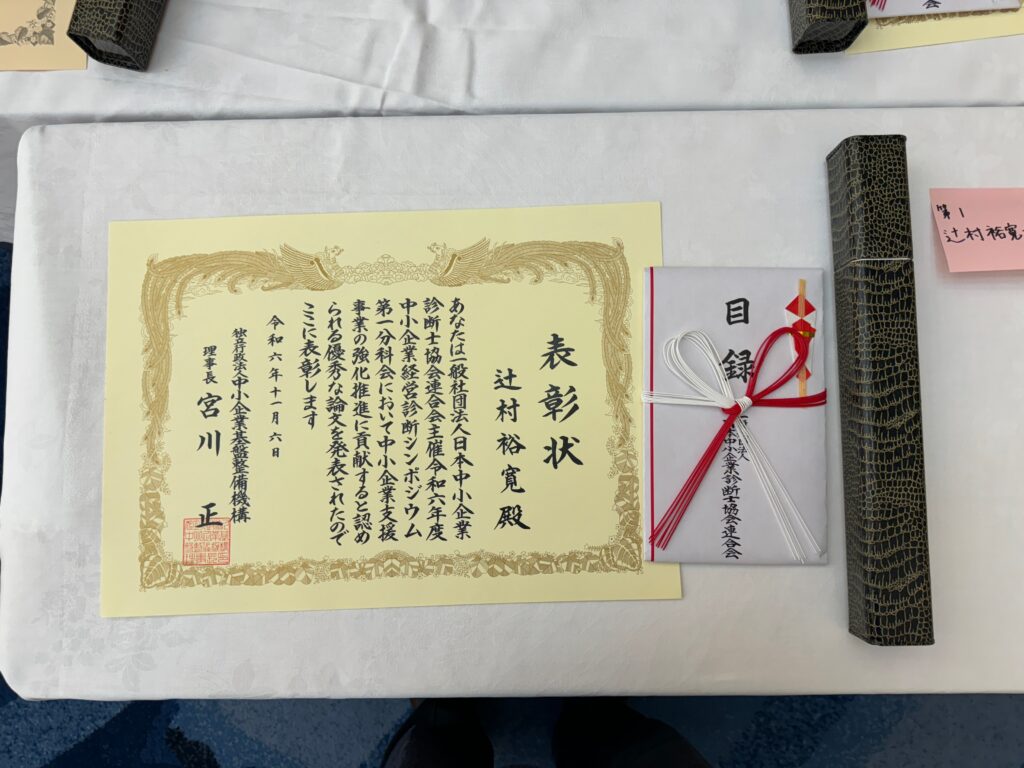 表彰状
辻村裕寛殿
あなたは一般社団法人日本中小企業
診断士協会連合会主催令和六年度
中小企業経営診断シンポジウム
第一分科会において中小企業支援
事業の強化推進に貢献すると認め
られる優秀な論文を発表されたので
ここに表彰します
令和六年十一月六日
独立行政法人中小企業基盤整備機構
理事長 宮川 正
目録
中小企業診断士協会連合会
第1
辻村裕寛